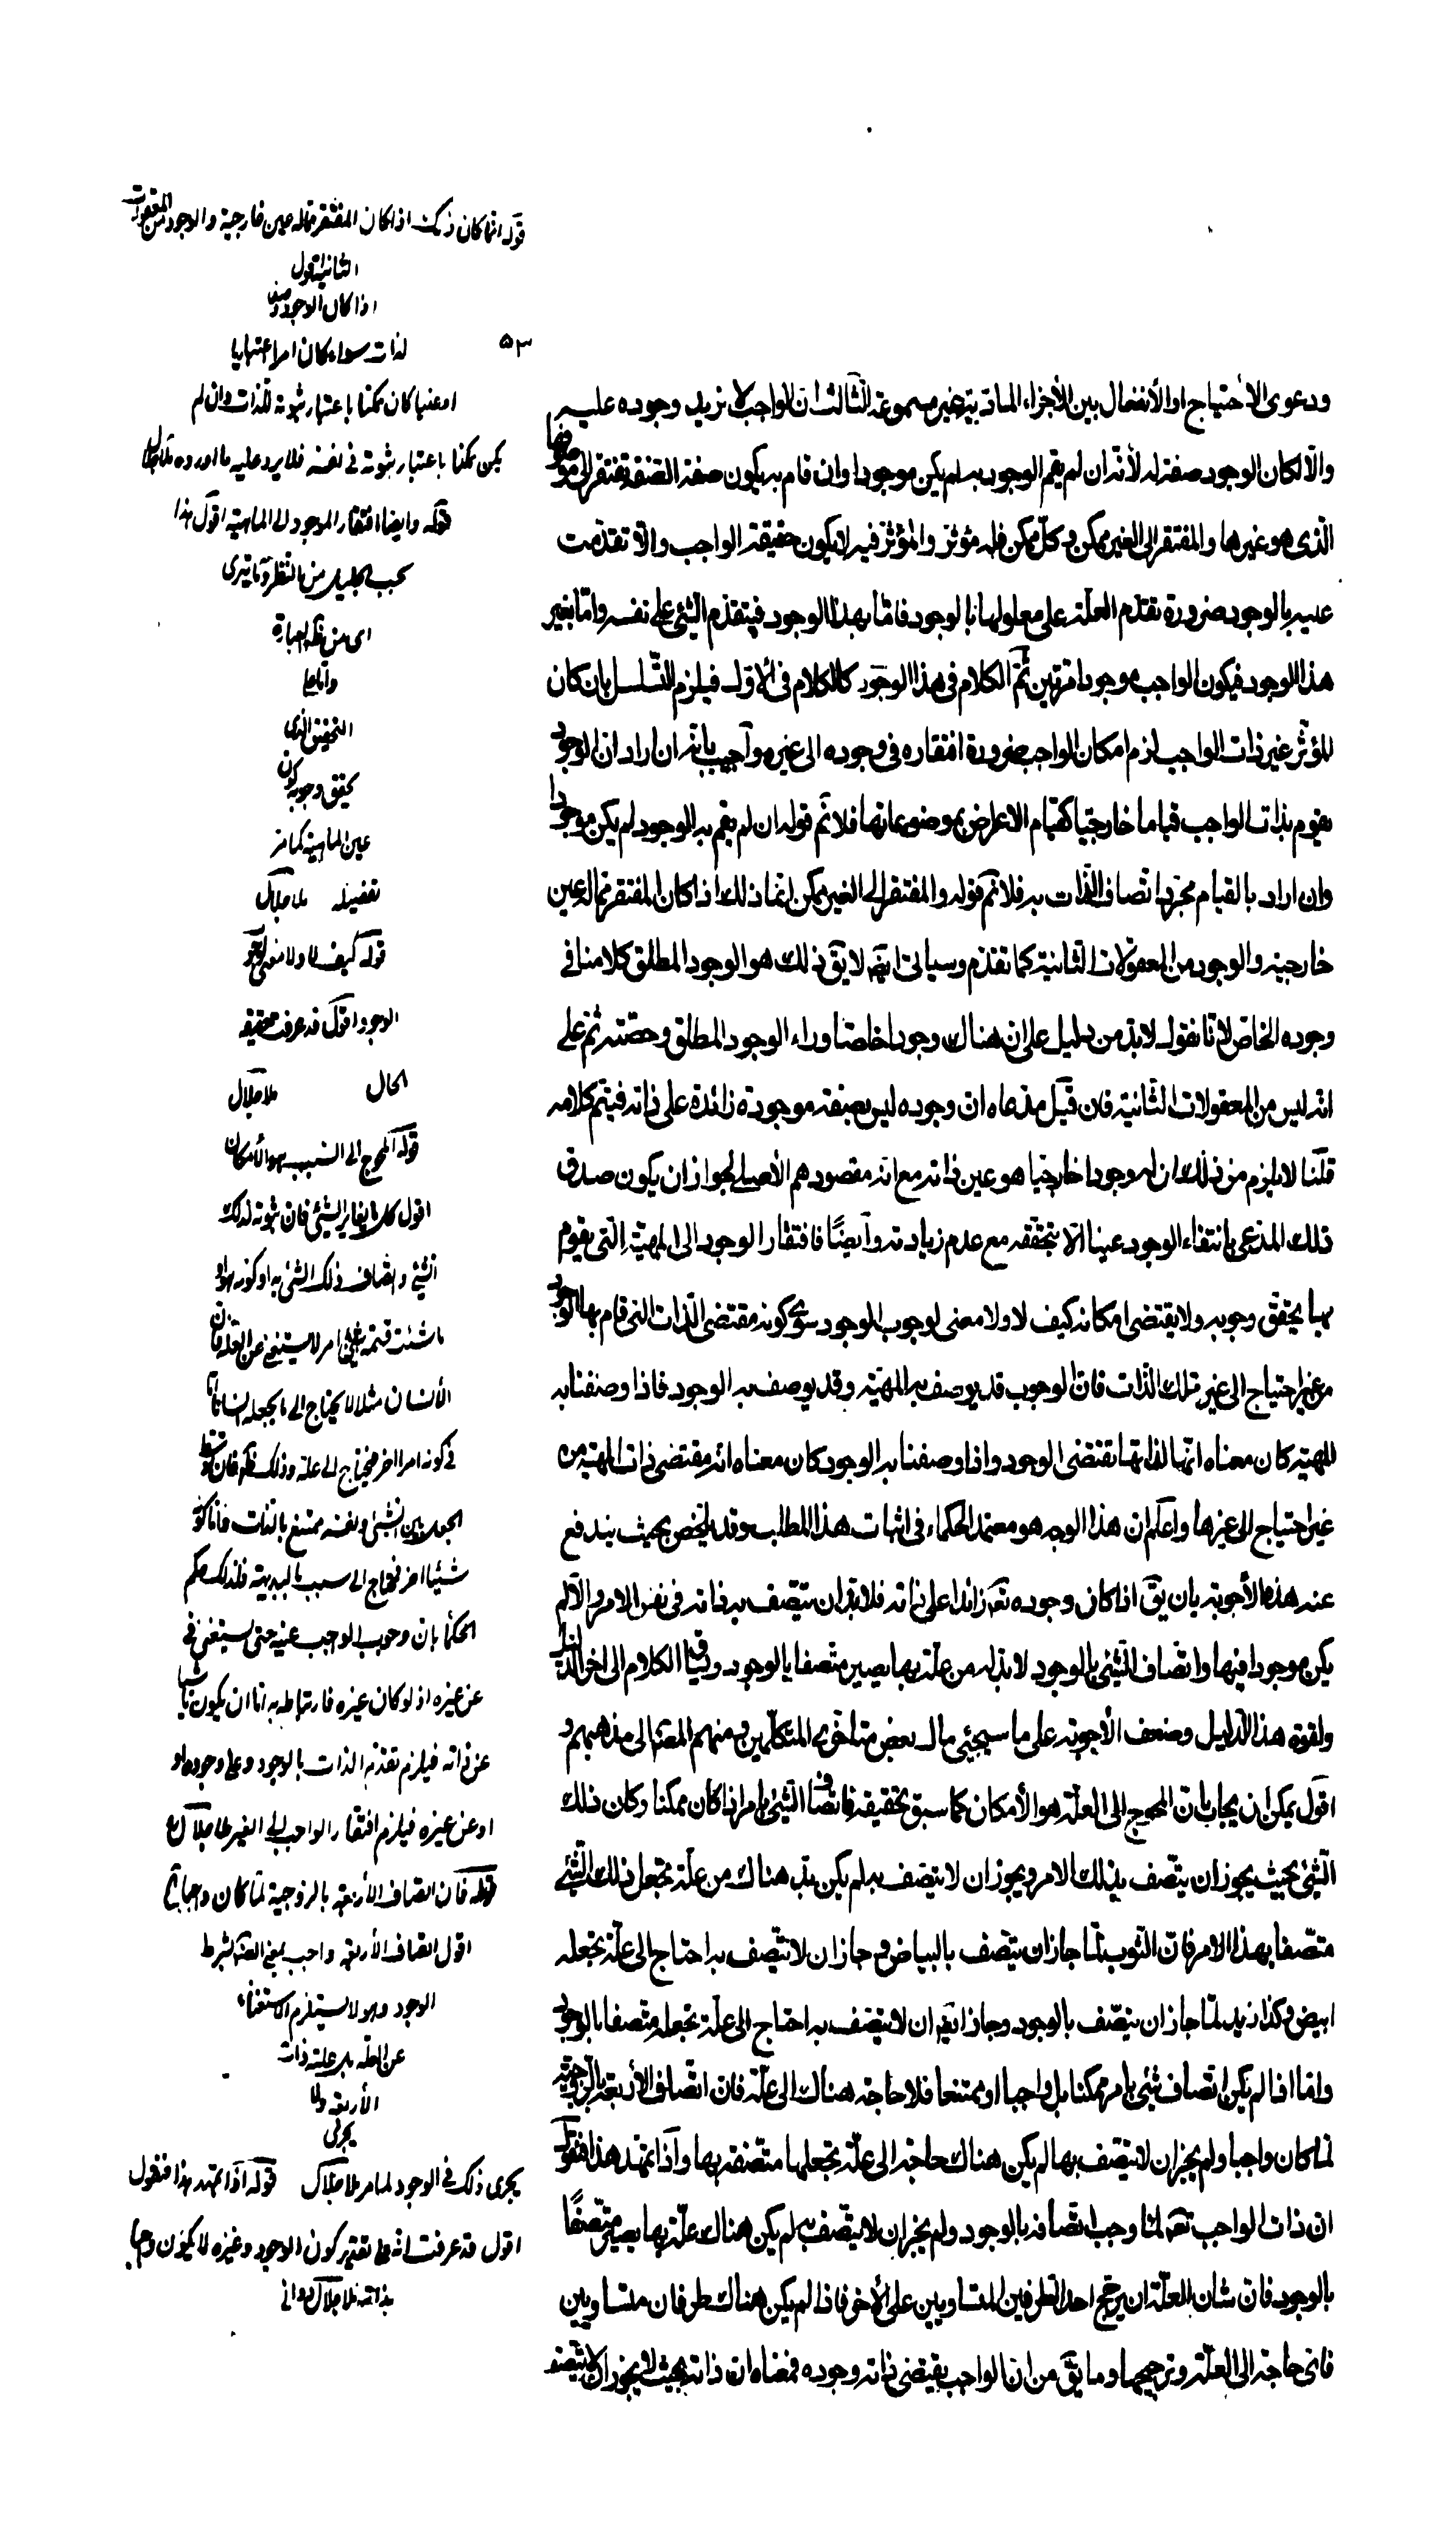 ٥٣
ودعوى الاحتياج او الأنفعال بين الأجزاء المادية غير مسموعة الثالث ان الواجب لا يزيد وجوده عليه
والا لكان الوجود صفة له لأنه ان لم يقم الوجود به لم يكن موجودا وان قام به يكون صفة الصفة تفتقر الى موصوفها
الذى هو غيرها والمفتقر الى الغير ممكن وكل ممكن فله مؤثر والمؤثر فيه لا يكون حقيقة الواجب والا تقدمت
عليه بالوجود ضرورة تقدم العلة على معلولها بالوجود فاما بهذا الوجود فيتقدم الشئ على نفسه واما بغير
هذا الوجود فيكون الواجب موجودا مرتين ثم الكلام فى هذا الوجود كالكلام فى الأول فيلزم التسلسل بان كان
المؤثر غير ذات الواجب لزم امكان الواجب ضرورة افتقاره فى وجوده الى غيره وأجيب بانه ان اراد ان الوجود
يقوم بذات الواجب قياما خارجيا كقيام الاعراض بموضوعاتها فلا نم قوله ان لم يقم به الوجود لم يكن موجودا
وان اراد بالقيام مجرد اتصاف الذات به فلا نم قوله والمفتقر الى الغير ممكن انما ذلك اذا كان المفتقر مما له عين
خارجية والوجود من المعقولات الثانية كما تقدم وسياتى ايضا لا يق ذلك هو الوجود المطلق كلامنا فى
وجوده الخاص لانا نقول لابد من دليل على ان هناك وجودا خاصا وراء الوجود المطلق وحصته ثم على
انه ليس من المعقولات الثانية فان قيل مدعاه ان وجوده ليس بصفة موجودة زائدة على ذاته فيتم كلامه
قلنا لا يلزم من ذلك ان له وجودا خارجيا هو عين ذاته مع انه مقصودهم الأصلى لجواز ان يكون صدق
ذلك المدعى بانتفاء الوجود عينا لا بتحققه مع عدم زيادته وأيضًا فافتقار الوجود الى المهية التى يقوم
بها يحقق وجوبه ولا يقتضى امكانه كيف لا ولا معنى لوجوب الوجود سوى كونه مقتضى الذات التى قام بها الوجود
من غير احتياج الى غير تلك الذات فان الوجوب قد يوصف به المهية وقد يوصف به الوجود فاذا وصفنا به
المهية كان معناه انها لذاتها تقتضى الوجود واذا وصفنا به الوجود كان معناه انه مقتضى ذات المهية من
غير احتياج الى غيرها واعلم ان هذا الوجه هو معتمد الحكماء فى اثبات هذا المطلب وقد يلخص بحيث يندفع
عنه هذه الأجوبة بان يق اذا كان وجوده تعه زائدا على ذاته فلابد ان يتصف به ذاته فى نفس الامر والا لم
يكن موجودا فيها واتصاف الشئ بالوجود لابد له من علة بها يصير متصفا بالوجود ويساق الكلام الى اخر الدليل
ولقوة هذا الدليل وضعف الأجوبة على ما سيجئ مال بعض متاخرى المتكلمين ومنهم المصـ الى مذهبهم و
اقول يمكن ان يجاب بان المحوج الى العلة هو الأمكان كما سبق تحقيقه فاتصاف الشئ بامر اذا كان ممكنا وكان ذلك
الشئ بحيث يجوز ان يتصف بذلك الامر ويجوز ان لا يتصف به لم يكن بد هناك من علة تجعل ذلك الشئ
متصفا بهذا الامر فان الثوب لما جاز ان يتصف بالبياض و جاز ان لا يتصف به احتاج الى علة تجعله
ابيض وكذا زيد لما جاز ان يتصف بالوجود وجاز ايضا ان لا يتصف به احتاج الى علة تجعله متصفا بالوجود
واما اذا لم يكن اتصاف شئ بامر ممكنا بل واجبا او ممتنعا فلا حاجة هناك الى علة فان اتصاف الأربعة بالزوجية
لما كان واجبا ولم يجز ان لا يتصف بها لم يكن هناك حاجة الى علة تجعلها متصفة بها وأذا تمهد هذا فنقول
ان ذات الواجب تعه لما وجب اتصافه بالوجود ولم يجز ان لا يتصف به لم يكن هناك علة بها يصير متصفًا
بالوجود فان شان العلة ان يرجح احد الطرفين المتساويين على الأخر فاذا لم يكن هناك طرفان متساويين
فاى حاجة الى العلة وترجيحها وما يق من ان الواجب يقتضى ذاته وجوده فمعناه ان ذاته بحيث لا يجوز ان لا يتصف
قوله انما كان ذلك اذا كان المفتقر مما له عين خارجية والوجود من المعقولات
الثانية اقول
اذا كان الوجود وصفا
لذات سواء كان امرا اعتباريا
او عينيا كان ممكنا باعتبار ثبوته للذات وان لم
يكن ممكنا باعتبار ثبوته فى نفسه فلا يرد عليه ما اورده ملا جلال
قوله وايضا افتقار الوجود الى الماهية اقول هذا
بحسب الجليل من النظر وما ترى
اى من ظاهر العبارة
واما
التحقيق الذى
يحقق وجوبه كون
عين الماهية كما مر
تفصيله ملا جلال
قوله كيف لا ولا معنى لوجوب
الوجود اقول قد عرفت حقيقة
الحال ملا جلال
قوله المحوج الى السبب هو الأمكان
اقول كل ما يغاير الشئ فان ثبوته لذلك
الشئ واتصاف ذلك الشئ به او كونه هو او
ما شئت فسمه امر لا يستغنى عن العلة فان
الأنسان مثلا لا يحتاج الى ما يجعله انسانا اما
فى كونه امرا اخر فيحتاج الى علة وذلك فان توسط
الجعل بين الشئ ونفسه ممتنع بالذات فاما كونه
شيئا اخر فيحتاج الى سبب بالبديهة فلذلك حكم
الحكماء بان وجوب الواجب عينه حتى يستغنى فى
عن غيره اذ لو كان غيره فارتباطه به اما ان يكون ناشيا
عن ذاته فيلزم تقدم الذات بالوجود على وجوده او
او عن غيره فيلزم افتقار الواجب الى الغير ملا جلال
قوله فان اتصاف الأربعة بالزوجية لما كان واجبا
اقول اتصاف الأربعة واجب بشرط
الوجود وهو لا يستلزم الاستغناء
عن العلة بل علته ذات
الأربعة ولا
يجرى
يجرى ذلك فى الوجود لما مر ملا جلال قوله اذا تمهد هذا فنقول
اقول قد عرفت انه على تقدير كون الوجود وغيره لا يكون واجبا
بذاته ملا جلال دوانى